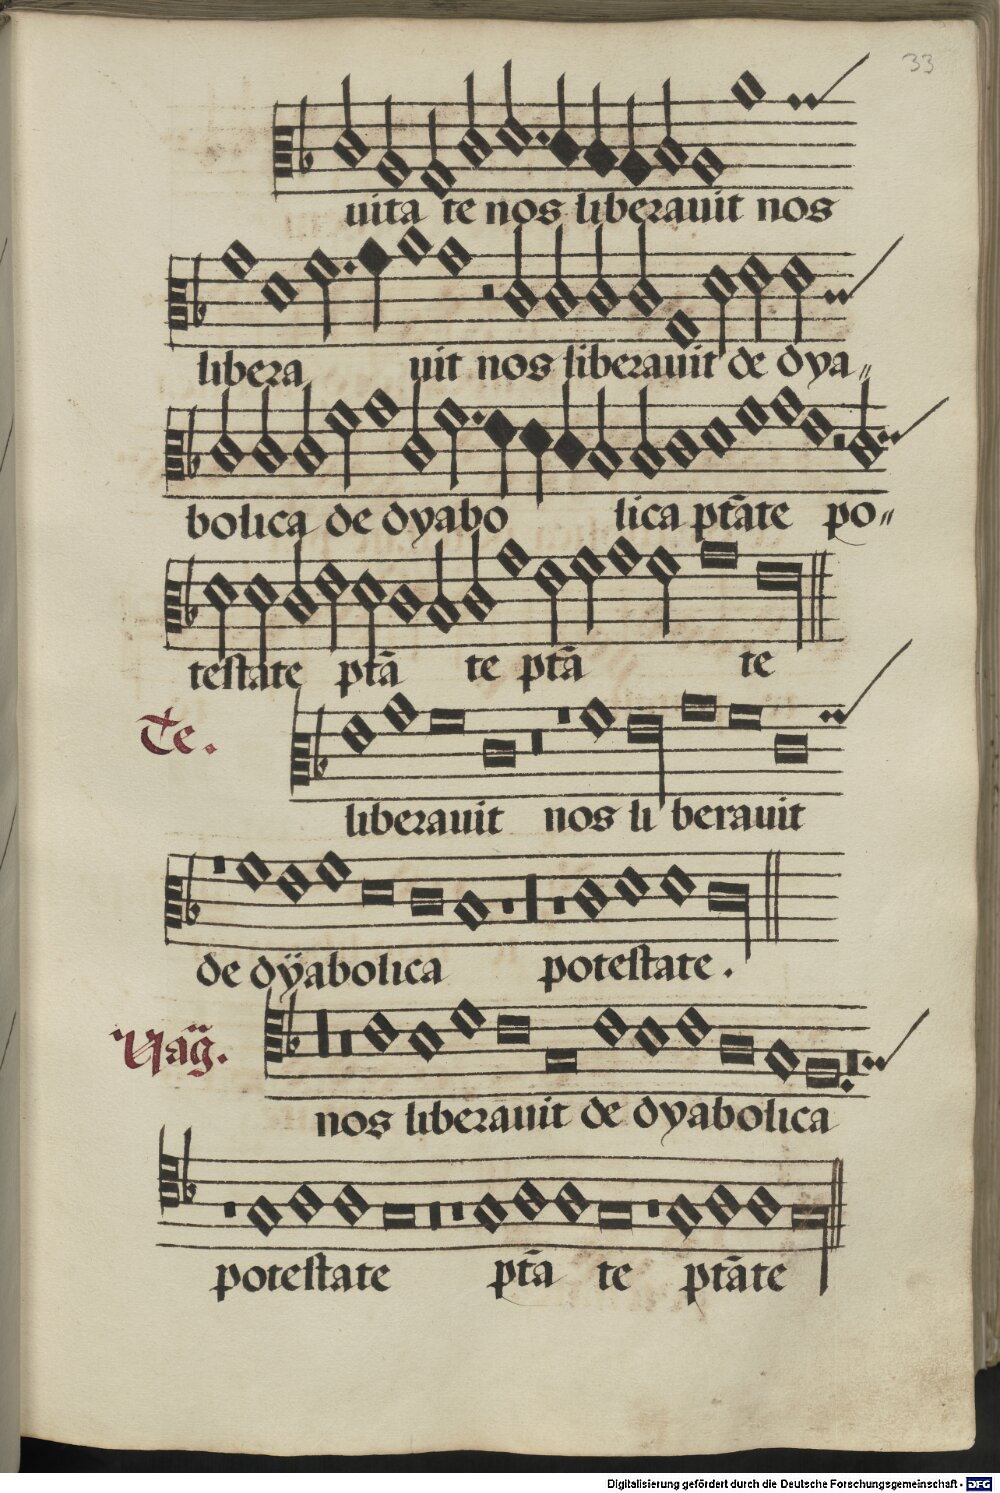 33
uita te nos liberauit nos
libera uit nos liberauit de dya〃
bolica de dyabo lica ptāte po〃
testate ptā te ptā te
Te.
liberauit nos li berauit
de dÿabolica potestate.
Vag̃.
nos liberauit de dyabolica
potestate ptā te ptāte
Digitalisierung gefördert durch die Deutsche Forschungsgemeinschaft - DFG